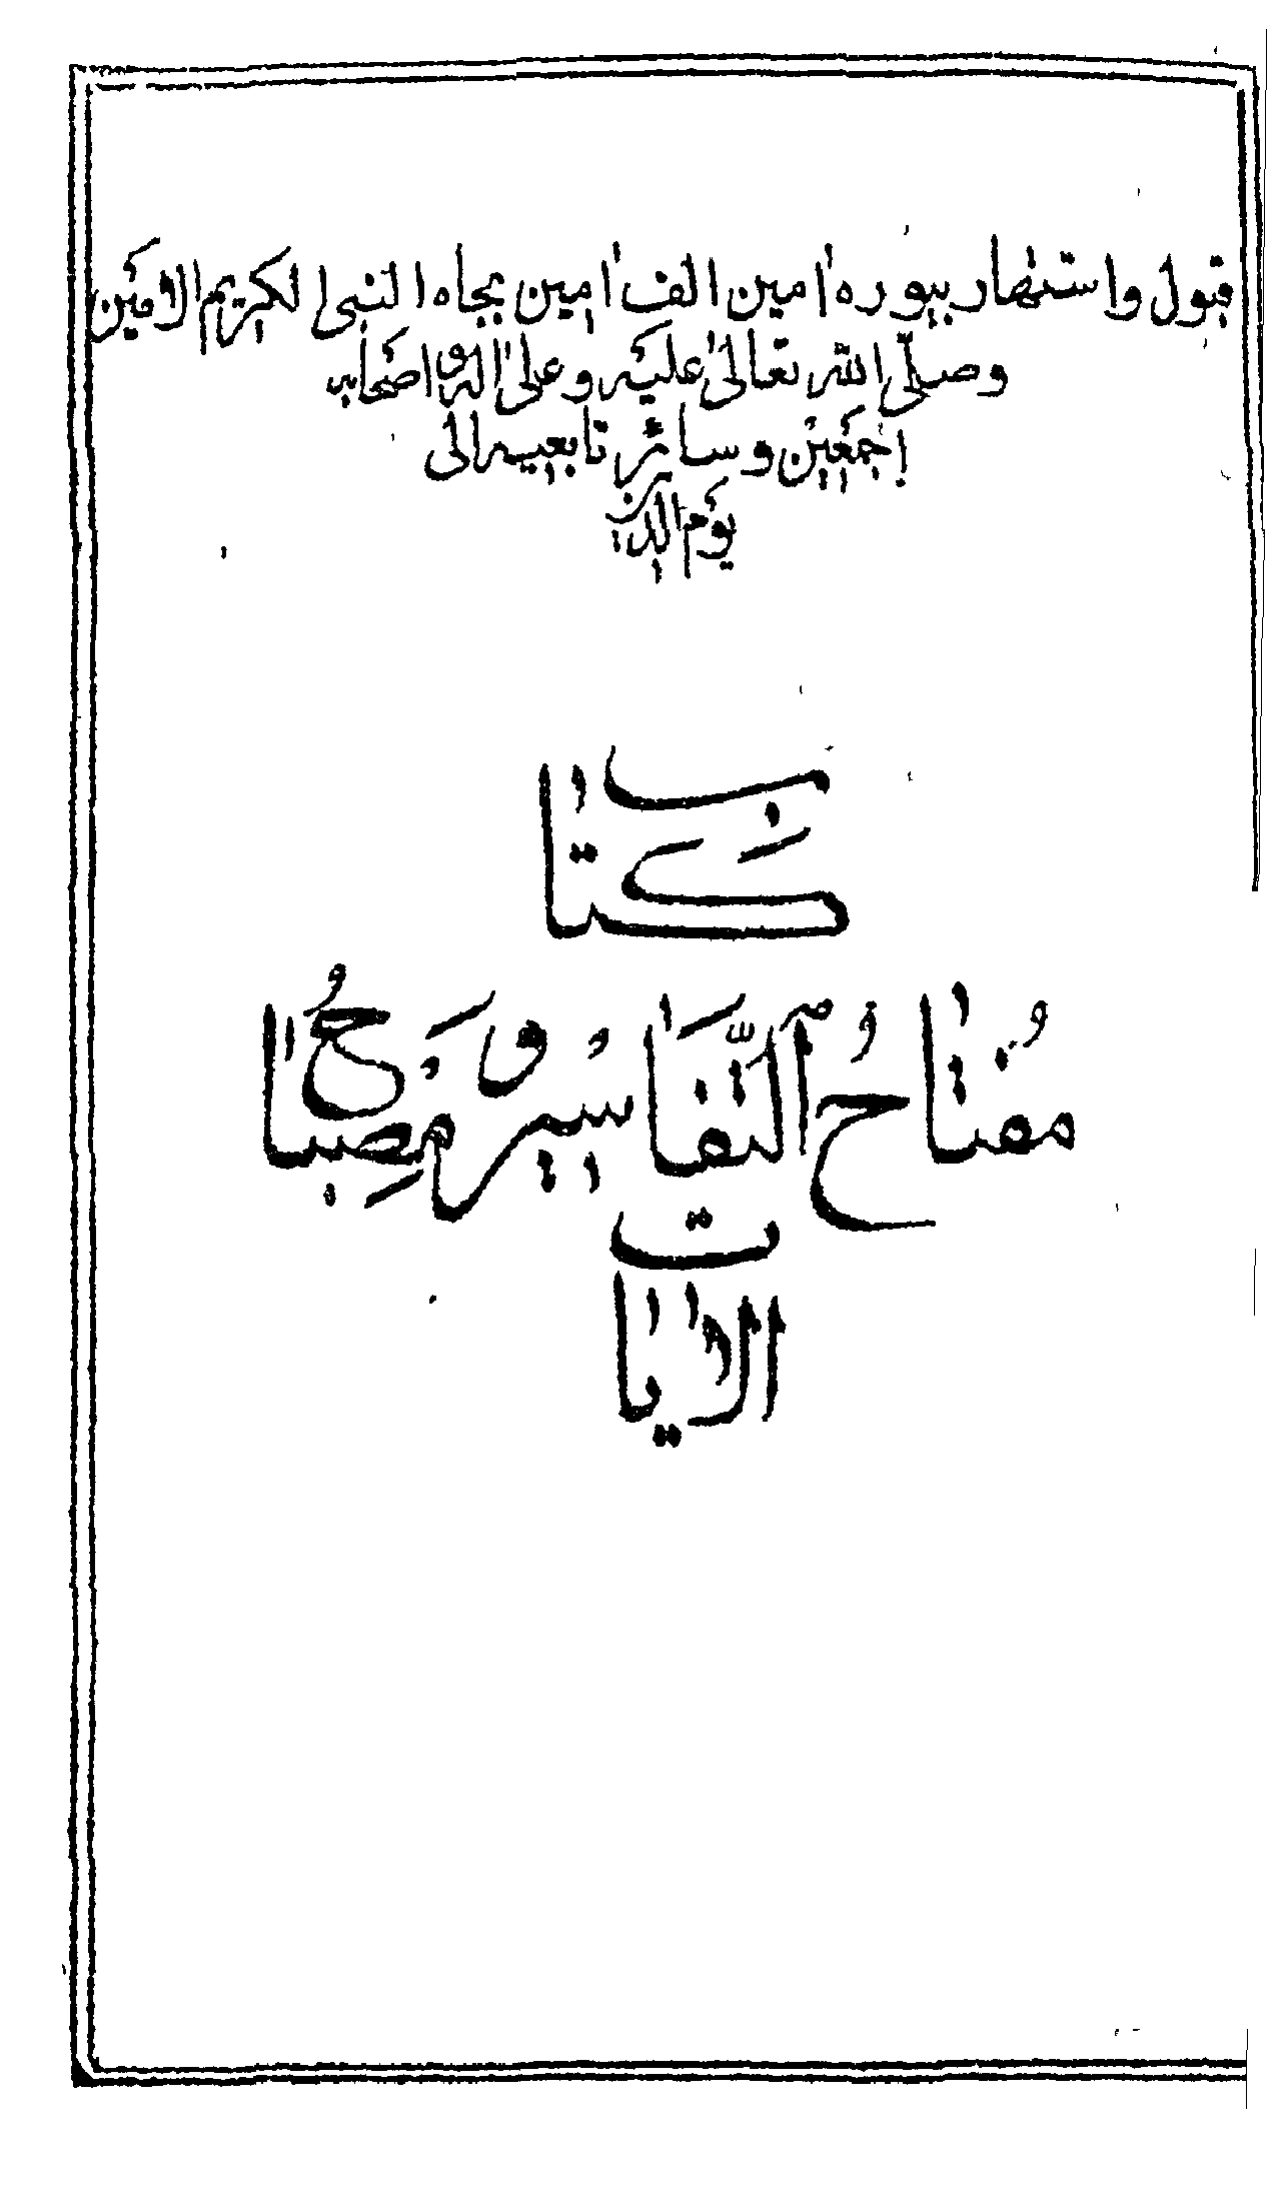 قبول واشتهار بيوره امين الف امين بجاه النبى الكريم الامين
وصلى الله تعالى عليه وعلى اله واصحابه
اجمعين وسائر تابعيه الى
يوم الدين
كتاب
مفتاح التفاسير ومصباح
الايات